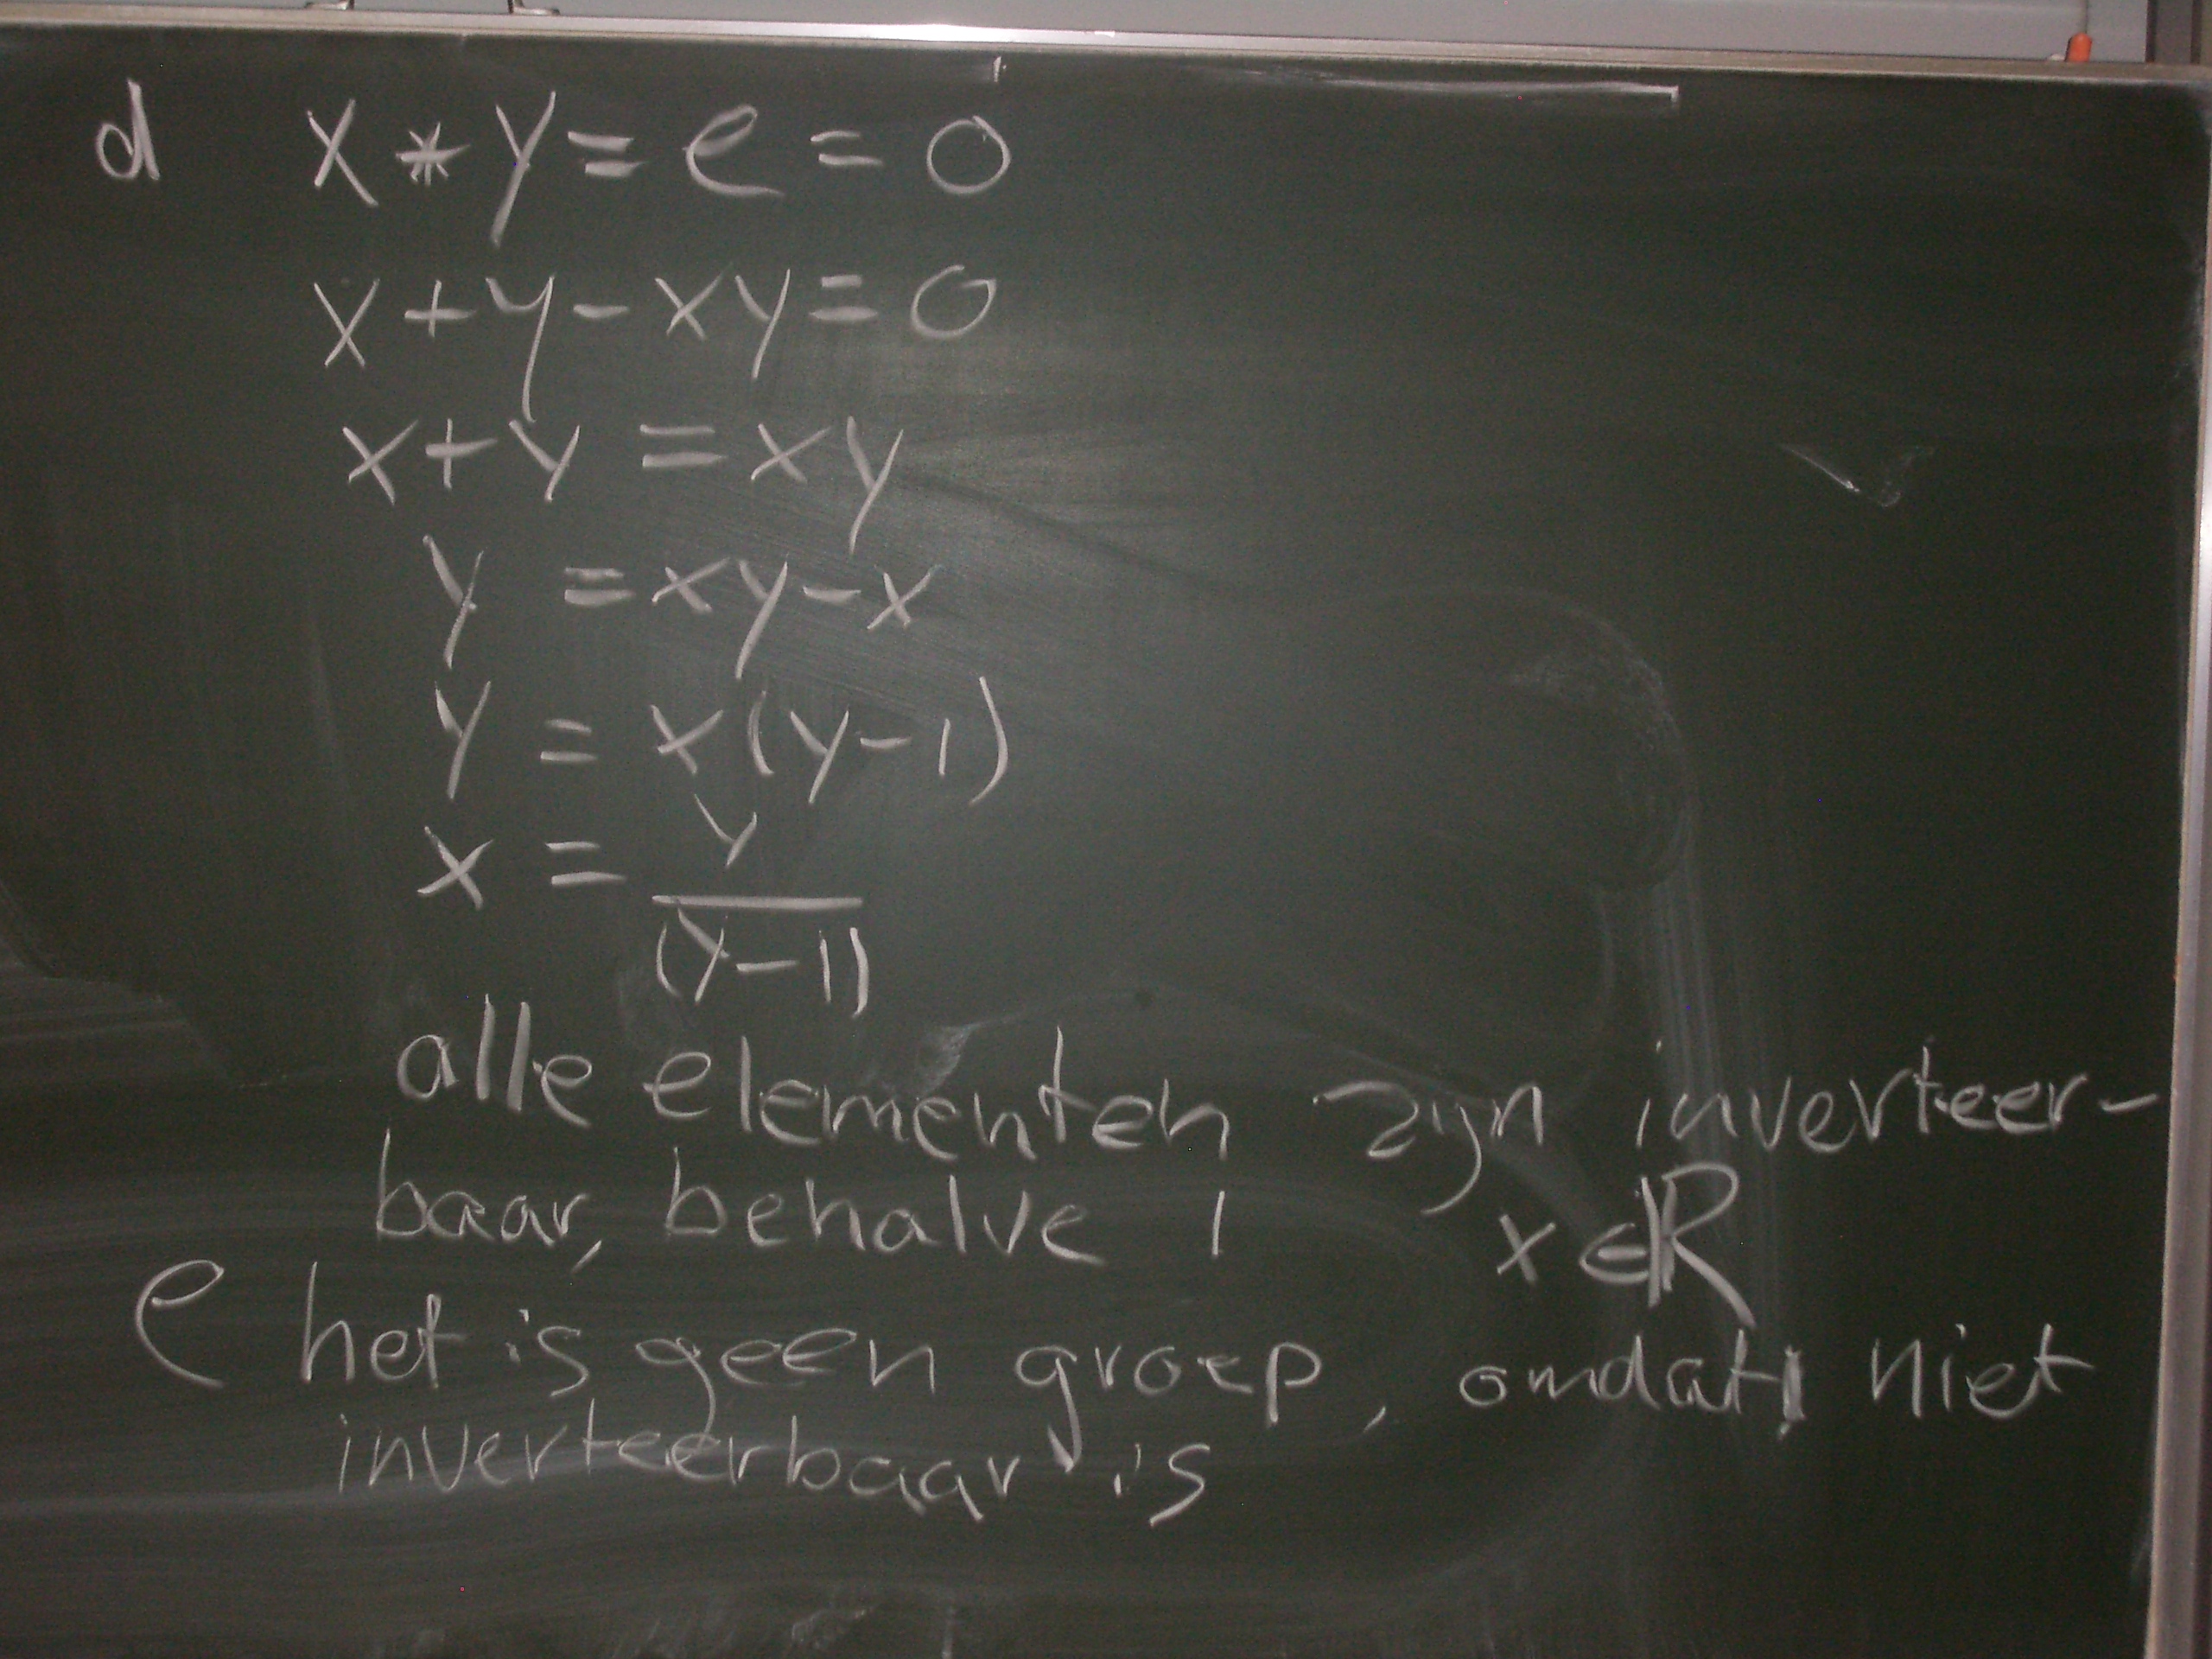 d x * y = e = 0
x + y - xy = 0
x + y = xy
y = xy - x
y = x(y-1)
x = y
(y-1)
alle elementen zijn inverteer-
baar, behalve 1 x ∈ ℝ
e het is geen groep, omdat 1 niet
inverteerbaar is